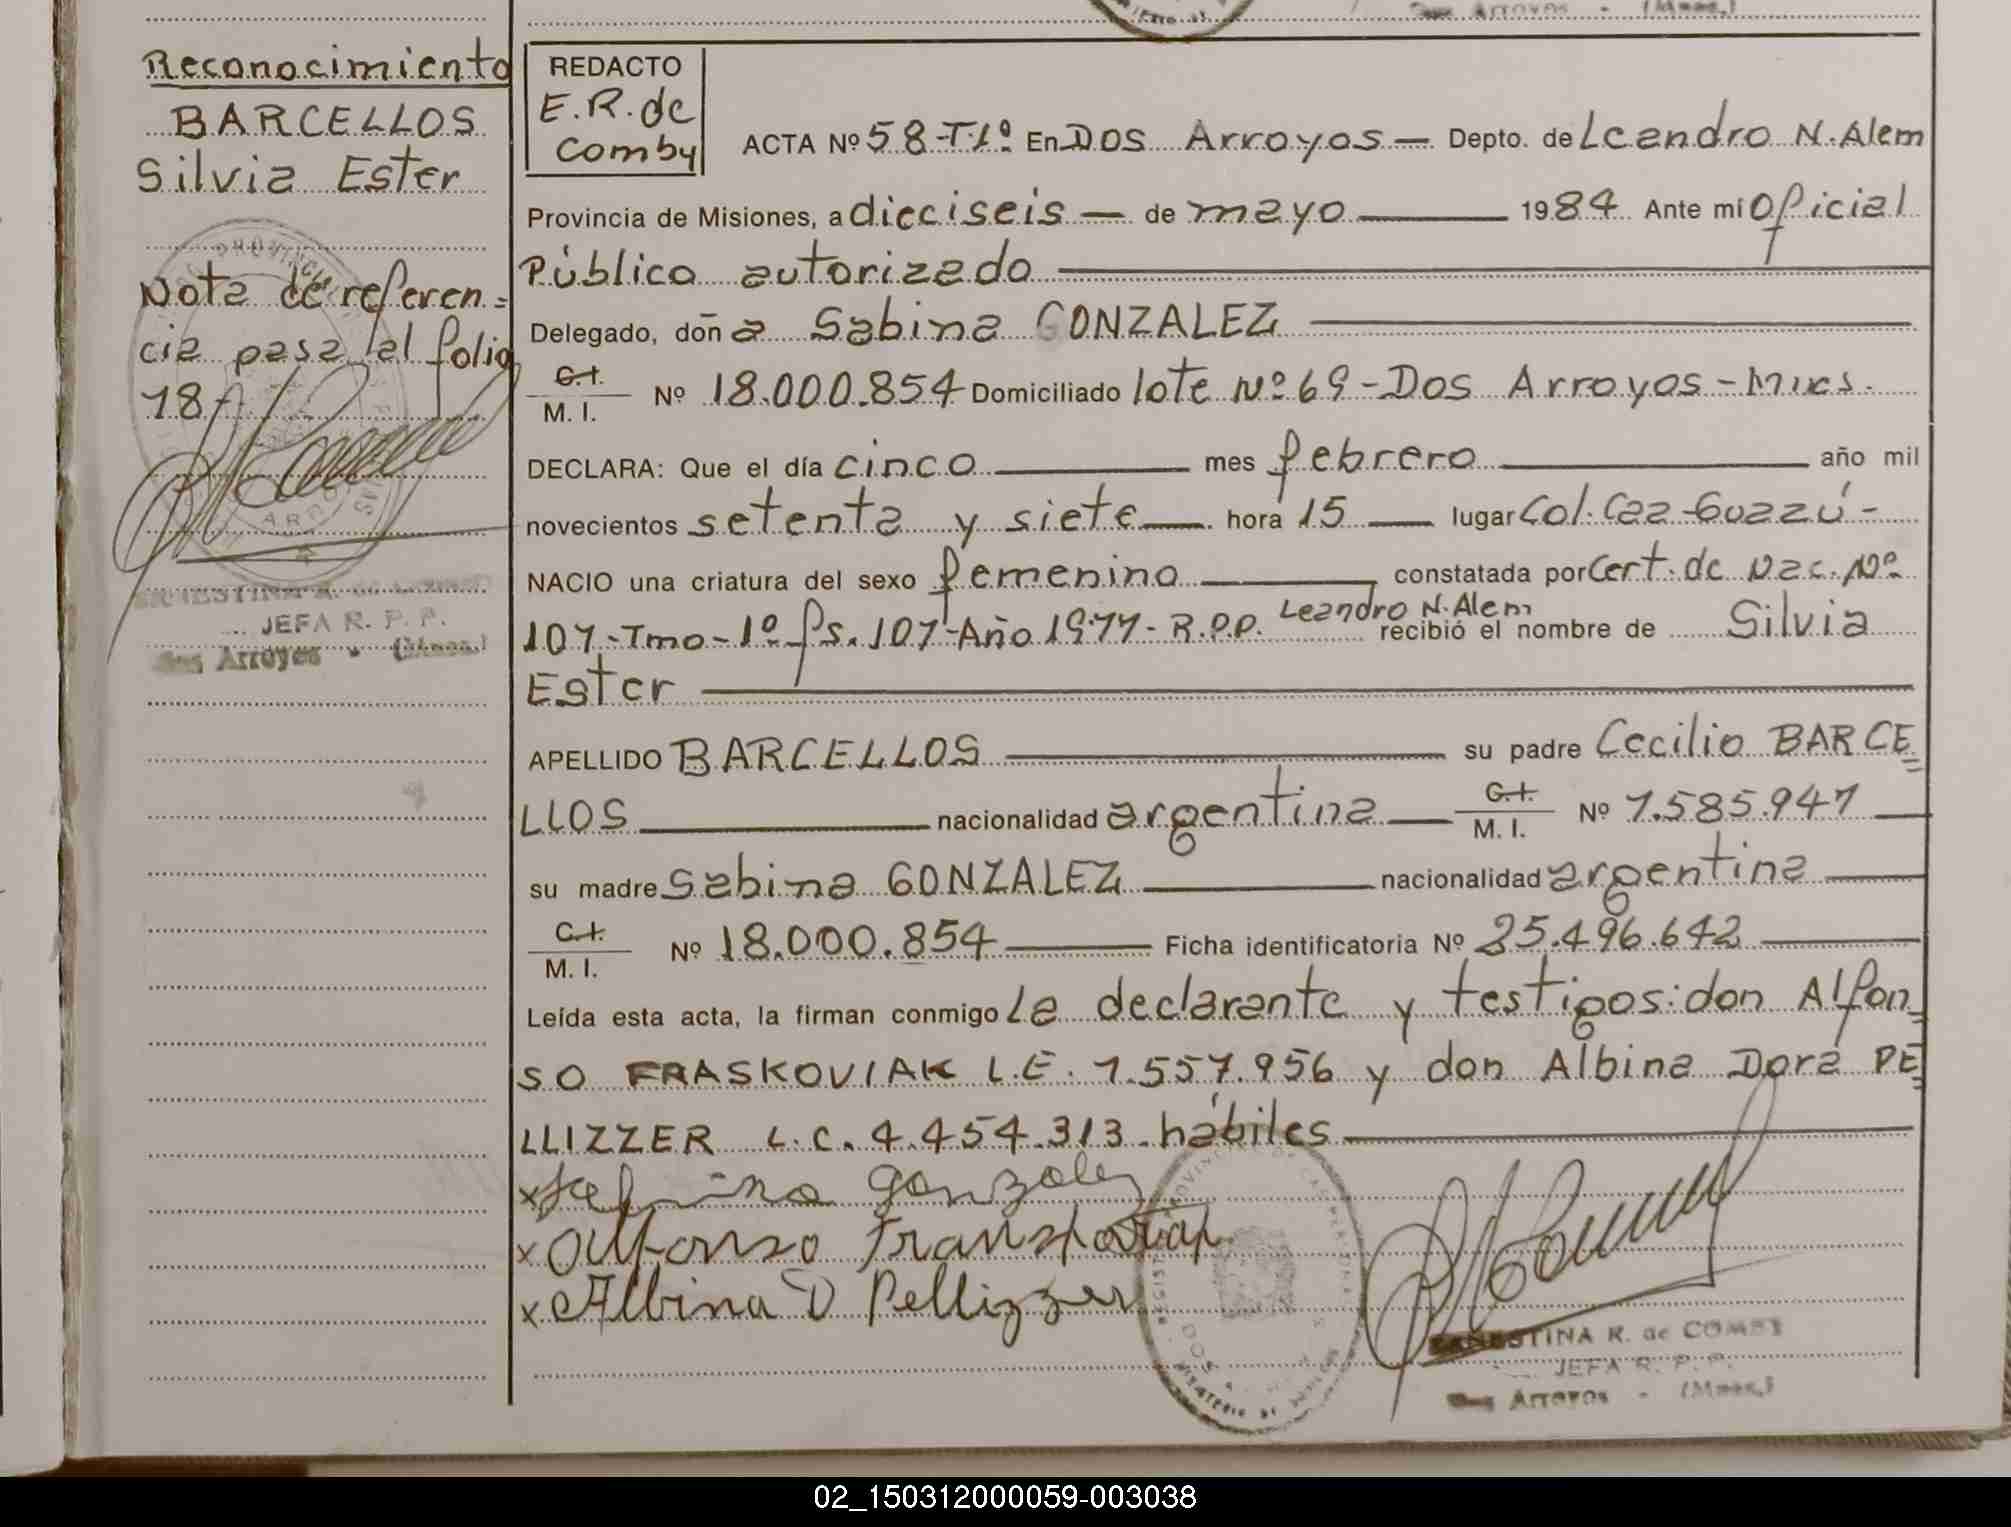 Reconocimiento
BARCELLOS
Silvia Ester
Nota de referen=
cia pasa al folio
18
JEFA R. P. P.
Dos Arroyos - (Mnes.)
REDACTO
E.R. de
Comby
ACTA Nº 58-T1º En DOS Arroyos — Depto. de Leandro N. Alem
Provincia de Misiones, a dieciseis — de mayo — 1984 Ante mí Oficial
Público autorizado
Delegado, doña Sabina GONZALEZ
C.I.
M. I. Nº 18.000.854 Domiciliado lote Nº 69 - Dos Arroyos - Mnes.
DECLARA: Que el día cinco — mes febrero — año mil
novecientos setenta y siete — hora 15 — lugar Col. Caa-Guazú -
NACIO una criatura del sexo femenino — constatada por Cert. de Nac. Nº
107-Tmo-1º fs. 107-Año 1977- R.P.P. Leandro N. Alem recibió el nombre de Silvia
Ester
APELLIDO BARCELLOS — su padre Cecilio BARCE=
LLOS — nacionalidad argentina — C.I. M. I. Nº 7.585.947
su madre Sabina GONZALEZ — nacionalidad argentina
C.I.
M. I. Nº 18.000.854 — Ficha identificatoria Nº 25.496.642
Leída esta acta, la firman conmigo La declarante y testigos: don Alfon=
so FRASKOVIAK L.E. 7.557.956 y don Albina Dora PE=
LLIZZER L.C. 4.454.313. hábiles
x Sabina Gonzalez
x Alfonso
x Albina D Pellizzer
ERNESTINA R. de COMBY
JEFA R. P. P.
Dos Arroyos - (Mnes.)
02_150312000059-003038